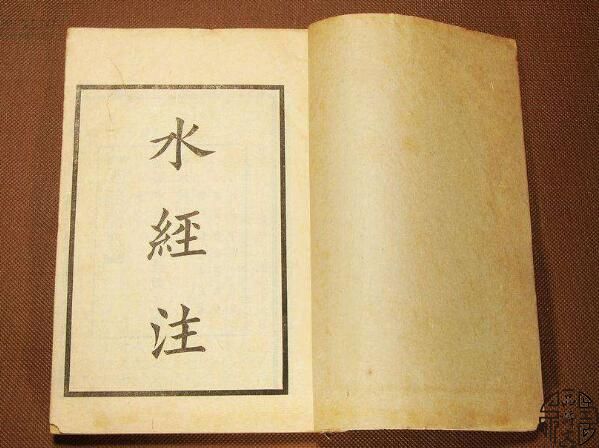 水經注